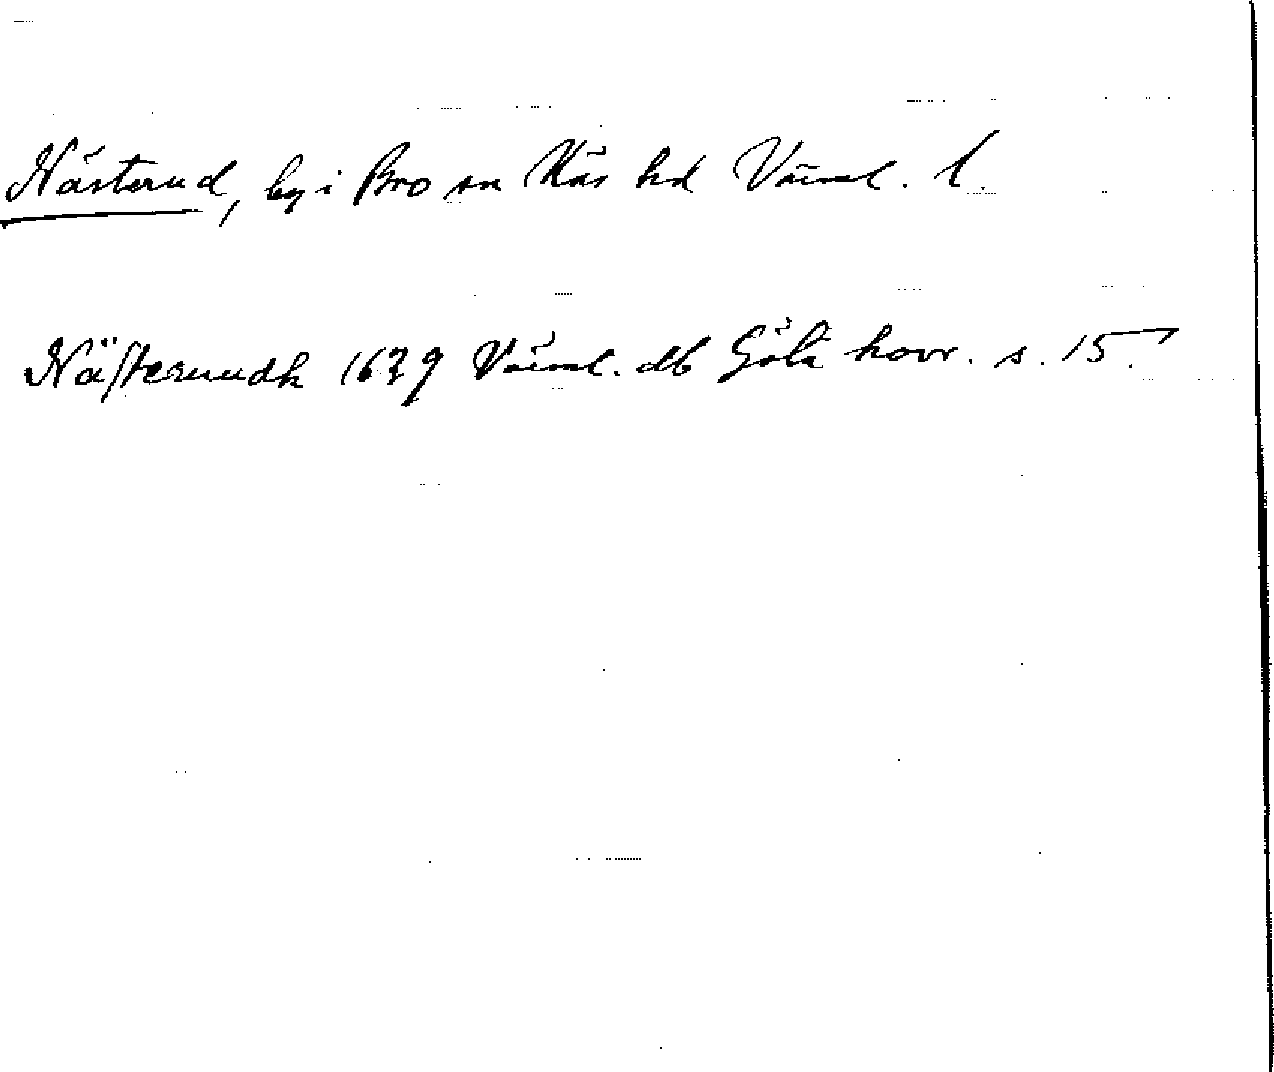 Nästerud, by i Bro sn Näs hd Värml. l.
Näſterundh 1639 Värml. db Göta hovr. s. 15.